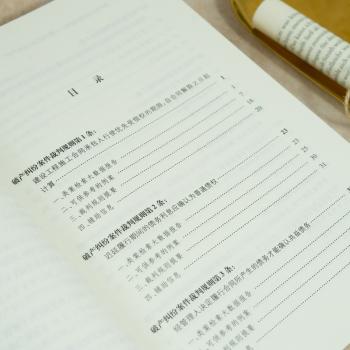 目 录
破产纠纷案件裁判规则第1条：
建设工程施工合同承包人行使优先受偿权的期限，自合同解除之日起
计算 1
一、类案检索大数据报告
二、可供参考的例案
三、裁判规则提要
四、辅助信息 20
破产纠纷案件裁判规则第2条：
迟延履行期间的债务利息应确认为普通债权 23
一、类案检索大数据报告 23
二、可供参考的例案 25
三、裁判规则提要 30
四、辅助信息 31
破产纠纷案件裁判规则第3条：
经管理人决定履行合同所产生的债务才能确认共益债务
一、类案检索大数据报告
二、可供参考的例案
三、裁判规则提要
四、辅助信息